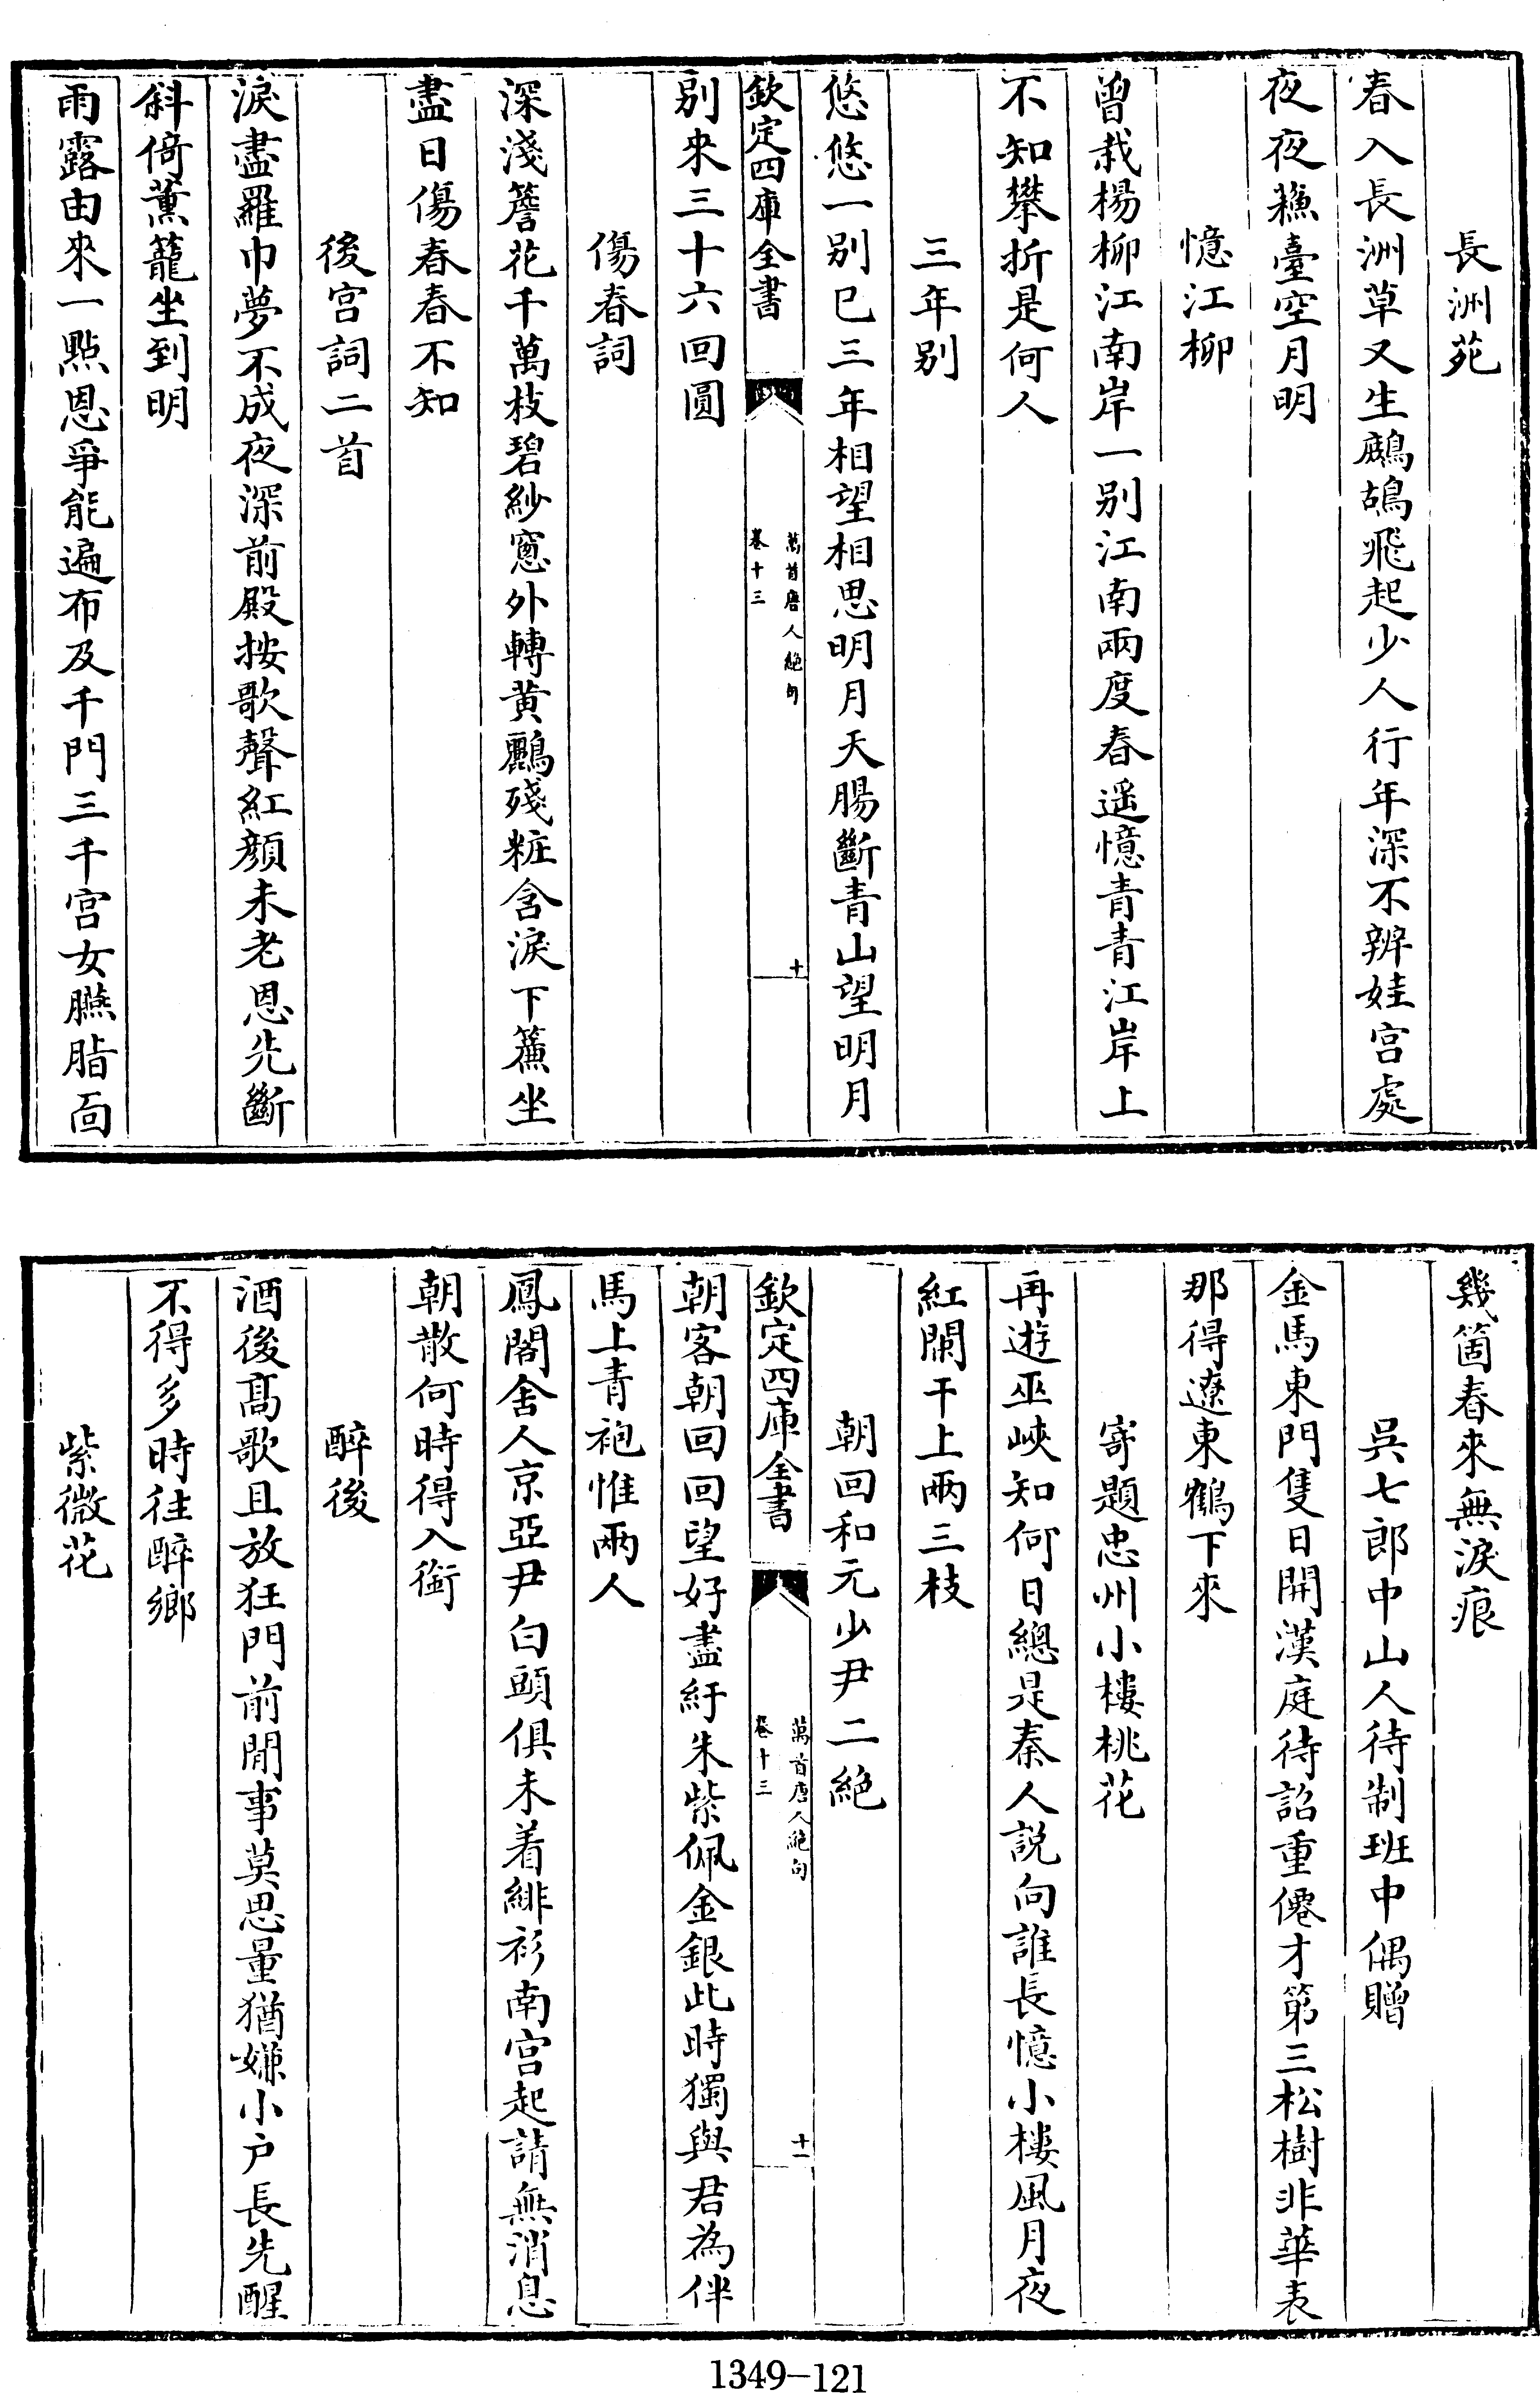 長洲苑
春入長洲草又生鷓鴣飛起少人行年深不辨娃宫處
夜夜蘓臺空月明
憶江柳
曾栽楊柳江南岸一别江南兩度春遥憶青青江岸上
不知攀折是何人
三年别
悠悠一别已三年相望相思明月天腸斷青山望明月
欽定四庫全書
萬首唐人絶句
卷十三
十
别來三十六回圓
傷春詞
深淺簷花千萬枝碧紗窻外轉黄鸝殘粧含淚下簾坐
盡日傷春春不知
後宫詞二首
淚盡羅巾夢不成夜深前殿按歌聲紅顔未老恩先斷
斜倚薫籠坐到明
雨露由來一點恩爭能遍布及千門三千宫女臙脂面
幾箇春來無淚痕
吳七郎中山人待制班中偶贈
金馬東門隻日開漢庭待詔重僊才第三松樹非華表
那得遼東鶴下來
寄題忠州小樓桃花
再遊巫峽知何日總是秦人說向誰長憶小樓風月夜
紅闌干上兩三枝
朝回和元少尹二絶
欽定四庫全書
萬首唐人絶句
卷十三
十一
朝客朝回回望好盡紆朱紫佩金銀此時獨與君為伴
馬上青袍惟兩人
鳳閣舍人京亞尹白頭俱未着緋衫南宫起請無消息
朝散何時得入銜
醉後
酒後髙歌且放狂門前閒事莫思量猶嫌小户長先醒
不得多時往醉鄉
紫微花
1349-121